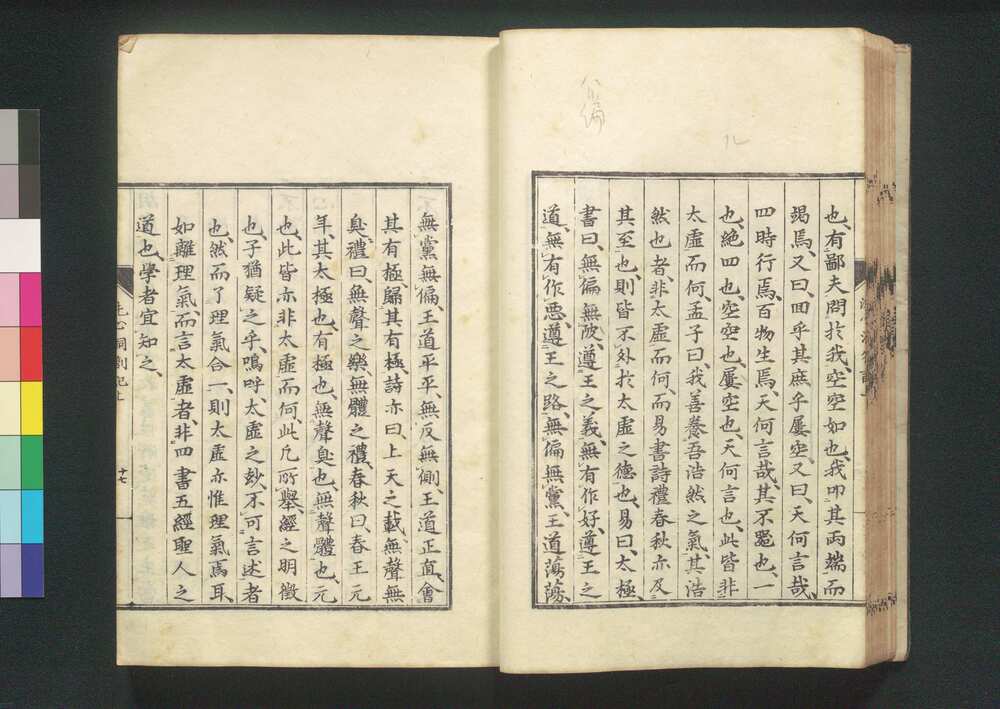 也、有鄙夫問於我、空空如也、我叩其両端而
竭焉、又曰、回乎其庶乎屢空、又曰、天何言哉、
四時行焉、百物生焉、天何言哉、其不器也、一
也、絶四也、空空也、屢空也、天何言也、此皆非
太虚而何、孟子曰、我善養吾浩然之氣、其浩
然也者、非太虚而何、而易書詩禮春秋亦及
其至也、則皆不外於太虚之德也、易曰、太極、
書曰、無偏無陂、遵王之義、無有作好、遵王之
道、無有作惡、遵王之路、無偏無黨、王道蕩蕩、
無黨無偏、王道平平、無反無側、王道正直、會
其有極、歸其有極、詩亦曰、上天之載、無聲無
臭、禮曰、無聲之樂、無體之禮、春秋曰、春王元
年、其太極也、有極也、無聲臭也、無聲體也、元
也、此皆亦非太虚而何、此凡所舉、經之明徴
也、子猶疑之乎、嗚呼、太虚之玅、不可言述者
也、然而了理氣合一、則太虚亦惟理氣焉耳、
如離理氣、而言太虚者、非四書五經聖人之
道也、學者宜知之、
洗心洞劄記上
十七